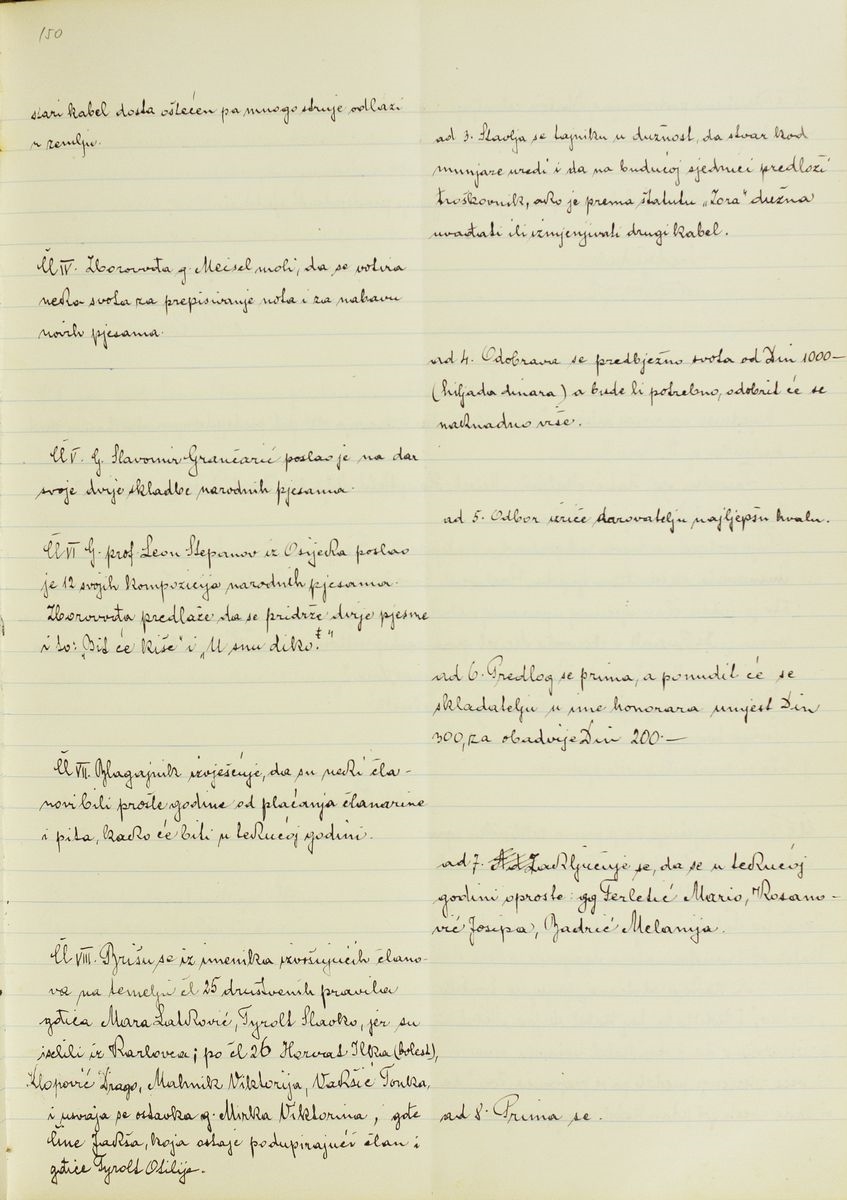 150
stari kabel dosta oštećen pa mnogo struje odlazi
u zemlju.
ad 3. Stavlja se tajniku u dužnost, da stvar kod
munjare uredi i da na budućoj sjednici predloži
troškovnik, ako je prema štatutu „Zora" dužna
uvađati ili izmjenjivati drugi kabel.
Čl IV. Zborovođa g. Meisel moli, da se votira
neka svota za prepisivanje nota i za nabavu
novih pjesama.
ad 4. Odobrava se predbježno svota od Din 1000-
(hiljada dinara) a bude li potrebno, odobrit će se
naknadno više.
Čl V. G. Slavomir Grančarić poslao je na dar
svoje dvije skladbe narodnih pjesama.
ad 5. Odbor izriče darovatelju najljepšu hvalu.
Čl VI G. prof. Leon Stepanov iz Osijeka poslao
je 12 svojih kompozicija narodnih pjesama.
Zborovođa predlaže da se pridrže dvije pjesme
i to: „Bit će kiše" i „U snu diko."
ad 6. Predlog se prima, a ponudit će se
skladatelju u ime honorara umjest Din
300, za obadvije Din 200.-
Čl VII. Blagajnik izvješćuje, da su neki čla-
novi bili prošle godine od plaćanja članarine
i pita, kako će biti u tekućoj godini.
ad 7. Zaključuje se, da se u tekućoj
godini oproste: gg Ferletić Mario, Kosano-
vić Josipa, Badrić Melanija.
Čl VIII. Brišu se iz imenika izvošujućih člano-
va na temelju čl 25 društvenih pravila
gđica Mara Latković, Tyrolt Slavko, jer su
iselili iz Karlovca; po čl 26 Horvat Ilka (bolest),
Klopović Drago, Mahnik Viktorija, Vakšić Tonka,
i usvaja se ostavka g. Mirka Viktorina, gđe
Line Jakša, koja ostaje podupirajući član i
gđice Tyrolt Otilije.
ad 8. Prima se.